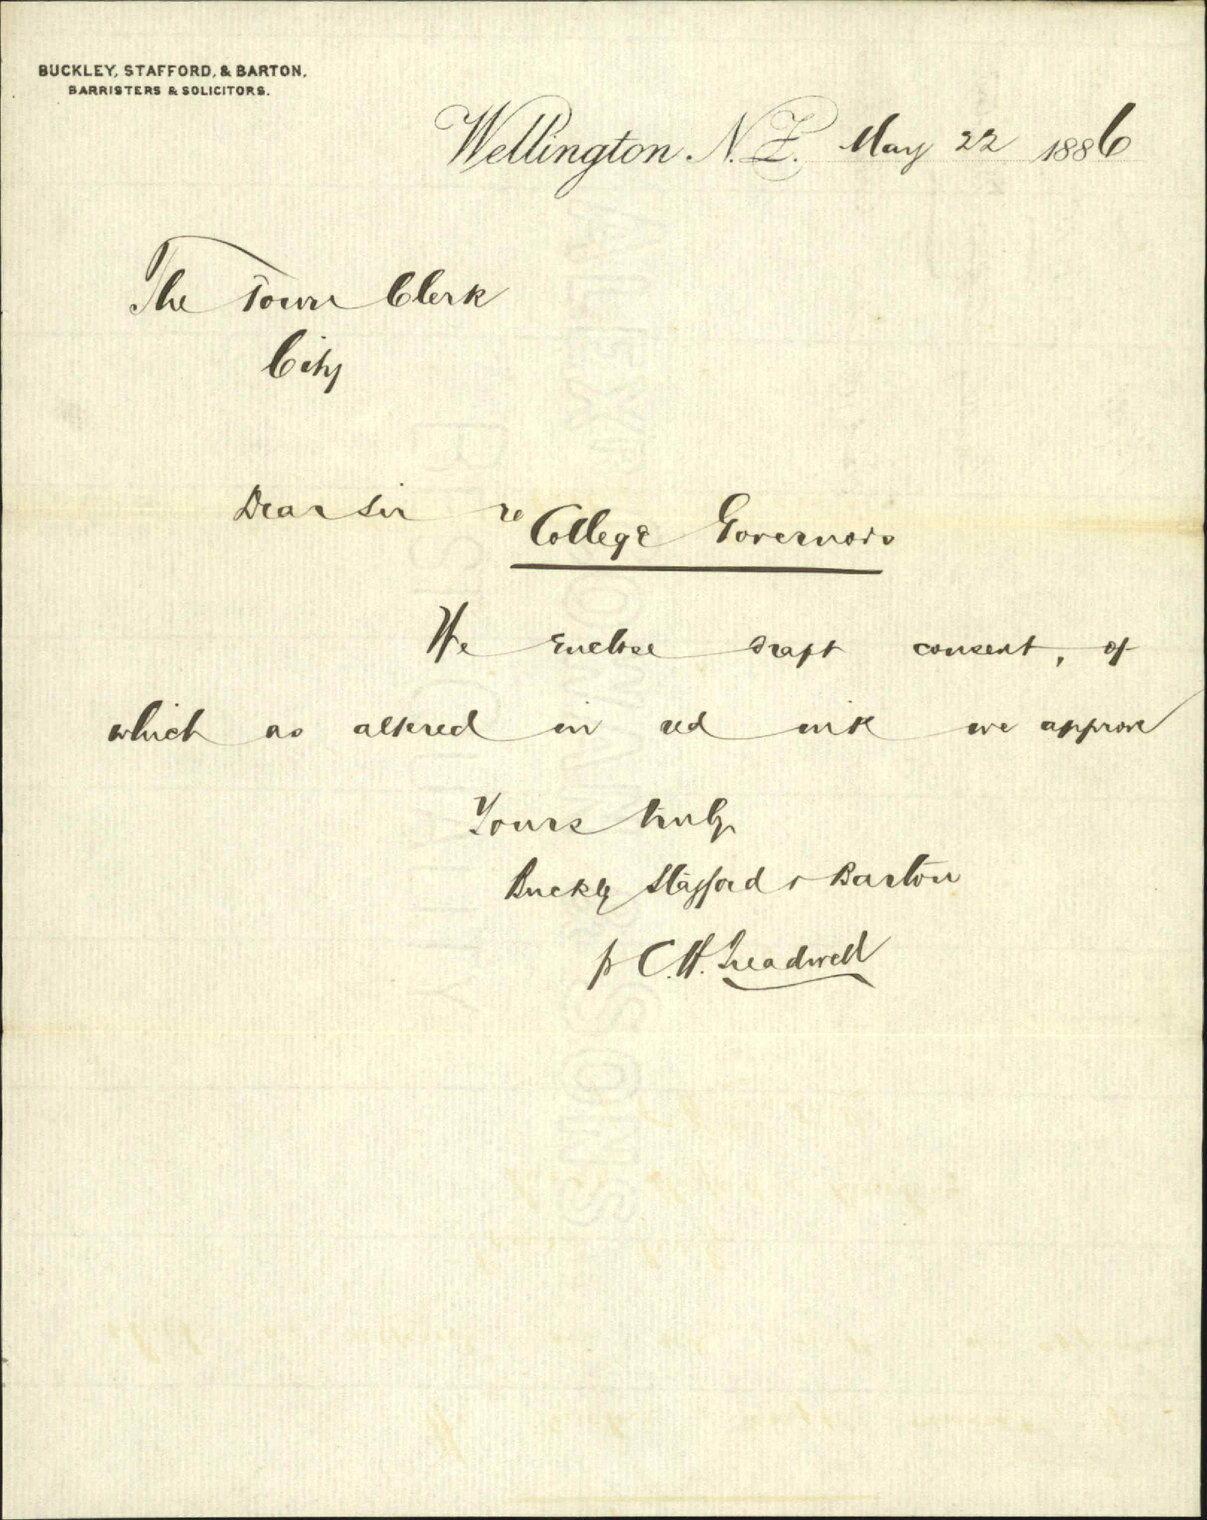 BUCKLEY, STAFFORD, & BARTON,
BARRISTERS & SOLICITORS.
Wellington N.Z. May 22 1886
The Town Clerk
City
Dear Sir re College Governors
We enclose draft consent, of
which as altered in red ink we approve
Yours truly
Buckley Stafford & Barton
pr C.H. Treadwell